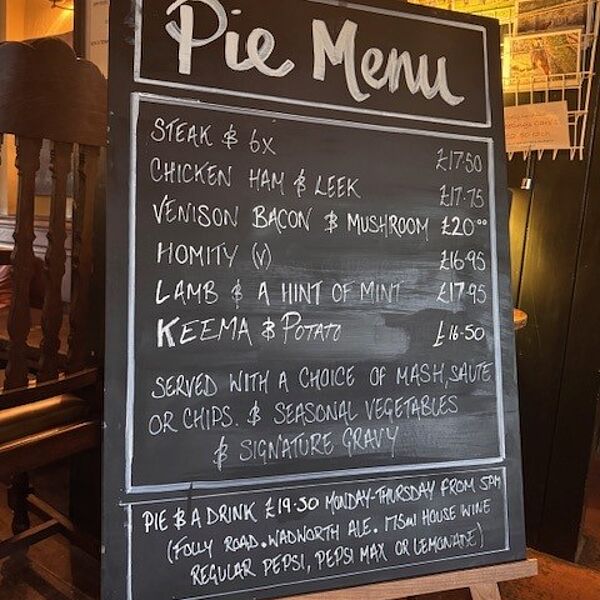 Pie Menu
STEAK & 6X £17.50
CHICKEN HAM & LEEK £17.75
VENISON BACON & MUSHROOM £20.00
HOMITY (V) £16.95
LAMB & A HINT OF MINT £17.95
KEEMA & POTATO £16.50
SERVED WITH A CHOICE OF MASH, SAUTE
OR CHIPS. & SEASONAL VEGETABLES
& SIGNATURE GRAVY
PIE & A DRINK £19.50 MONDAY-THURSDAY FROM 5PM
(FOLLY ROAD. WADWORTH ALE. 175ml HOUSE WINE
REGULAR PEPSI, PEPSI MAX OR LEMONADE)